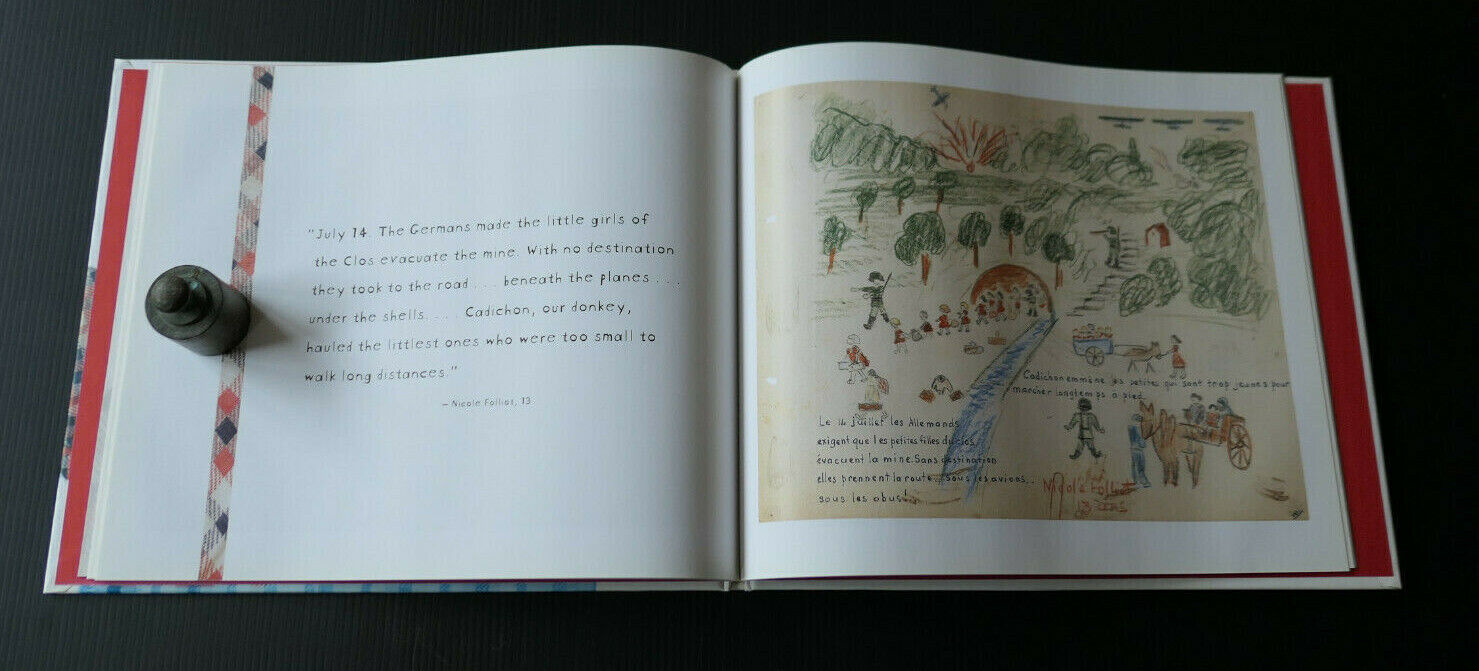 "July 14. The Germans made the little girls of
the Clos evacuate the mine. With no destination
they took to the road . . . beneath the planes . . .
under the shells. . . . Cadichon, our donkey,
hauled the littlest ones who were too small to
walk long distances."
— Nicole Folliot, 13
Cadichon emmène les petites qui sont trop jeunes pour
marcher longtemps a pied.
Le 14 juillet les Allemands
exigent que les petites filles du clos
évacuent la mine. Sans destination
elles prennent la route.. sous les avions..
sous les obus!
Nicole Folliot
13 ans